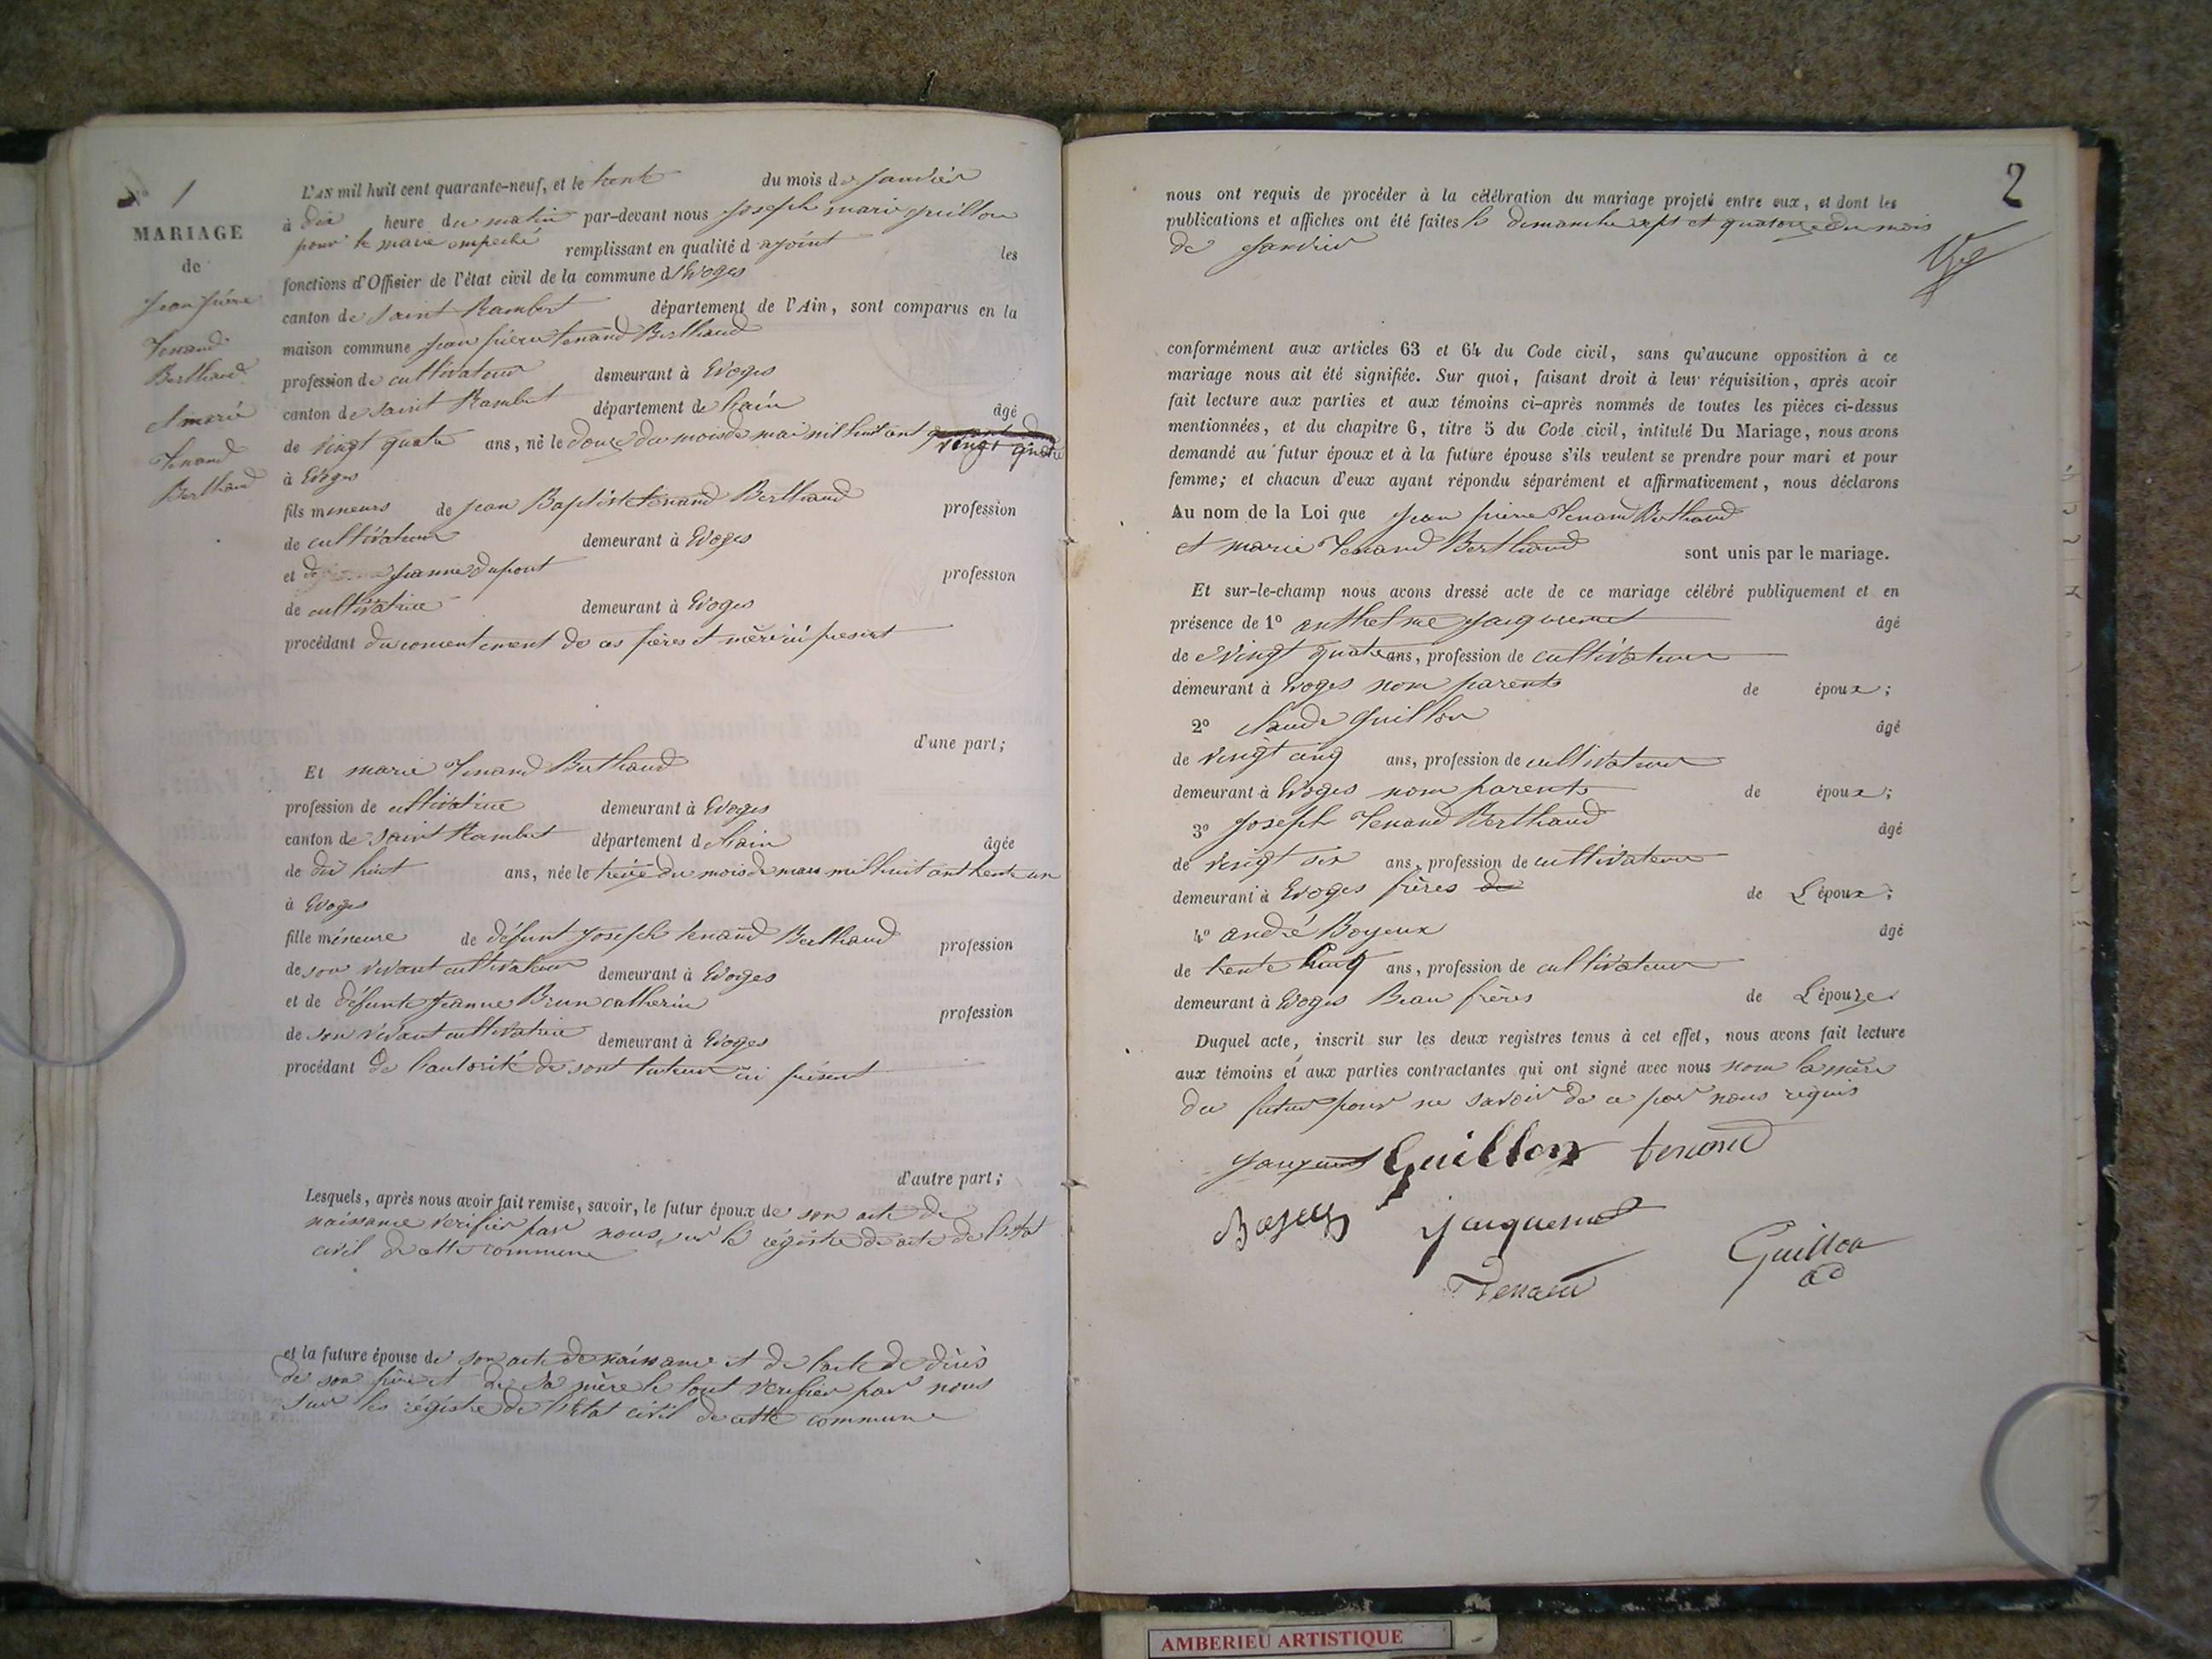 N° 1
MARIAGE
de
Jean pierre
Tenand
Berthaud
et marie
Tenand
Berthaud
L'AN mil huit cent quarante-neuf, et le trente du mois de Janvier
à dix heure du matin par-devant nous Joseph marie guillon
pour le maire empeché remplissant en qualité d ajoint les
fonctions d'Officier de l'état civil de la commune d'Evoges
canton de saint Rambert département de l'Ain, sont comparus en la
maison commune jean pierre tenand Berthaud
profession de cultivateur demeurant à Evoges
canton de saint Rambert département de l'ain âgé
de vingt quatre ans, né le douze du mois de mai mil huit cent vingt quatre
à Evoges
fils mineurs de jean Baptiste tenand Berthaud profession
de cultivateur demeurant à Evoges
et de jeanne dupont profession
de cultivatrice demeurant à Evoges
procédant du consentement de ces pères et mère ici present
d'une part;
Et marie Tenand Berthaud
profession de cultivatrice demeurant à Evoges
canton de saint Rambert département de l'ain âgée
de dix huit ans, née le treize du mois de mars mil huit cent trente un
à Evoges
fille mineure de défunt joseph tenand Berthaud profession
de son vivant cultivateur demeurant à Evoges
et de défunte jeanne Brun catherin profession
de son vivant cultivatrice demeurant à Evoges
procédant de l'autorité de sont tuteur ici présent
d'autre part;
Lesquels, après nous avoir fait remise, savoir, le futur époux de son acte de
naissance verifier par nous sur le régistre de acte de l'etat
civil de cette commune
et la future épouse de son acte de naissance et de l'acte de décès
de son père et de sa mère le tout verifier par nous
sur les régistre de l'Etat civil de cette commune
2
nous ont requis de procéder à la célébration du mariage projeté entre eux, et dont les
publications et affiches ont été faites le dimanche sept et quatorze du mois
de janvier
conformément aux articles 63 et 64 du Code civil, sans qu'aucune opposition à ce
mariage nous ait été signifiée. Sur quoi, faisant droit à leur réquisition, après avoir
fait lecture aux parties et aux témoins ci-après nommés de toutes les pièces ci-dessus
mentionnées, et du chapitre 6, titre 5 du Code civil, intitulé Du Mariage, nous avons
demandé au futur époux et à la future épouse s'ils veulent se prendre pour mari et pour
femme; et chacun d'eux ayant répondu séparément et affirmativement, nous déclarons
Au nom de la Loi que jean pierre Tenand Berthaud
et marie Tenand Berthaud sont unis par le mariage.
Et sur-le-champ nous avons dressé acte de ce mariage célébré publiquement et en
présence de 1° anthelme jacquemet âgé
de vingt quatre ans, profession de cultivateur
demeurant à Evoges nom parents de époux;
2° claude guillon âgé
de vingt cinq ans, profession de cultivateur
demeurant à Evoges nom parents de époux;
3° joseph Tenand Berthaud âgé
de vingt six ans, profession de cultivateur
demeurant à Evoges frères de de L'époux;
4° andré Boyeux âgé
de trente cinq ans, profession de cultivateur
demeurant à Evoges Beau frères de L'épouze.
Duquel acte, inscrit sur les deux registres tenus à cet effet, nous avons fait lecture
aux témoins et aux parties contractantes qui ont signé avec nous nom la mère
du futur pour ne savoir de ce par nous requis
Guillon tenand
Boyeux Jacquemet
Guillon
Tenand ad
AMBERIEU ARTISTIQUE